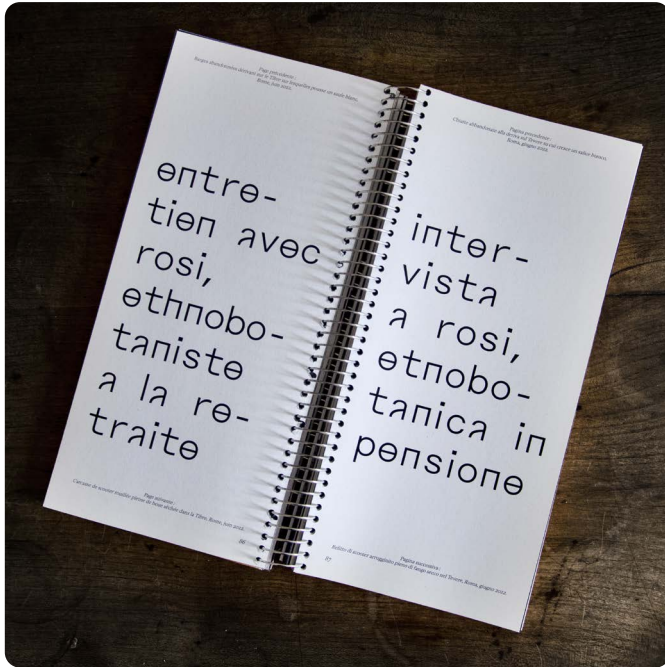 Page précédente :
Barges abandonnées dérivant sur le Tibre sur lesquelles pousse un saule blanc,
Rome, juin 2022.
entre-
tien avec
rosi,
ethnobo-
taniste
a la re-
traite
Page suivante :
Carcasse de scooter rouillée pleine de boue séchée dans le Tibre, Rome, juin 2022.
86
Pagina precedente :
Chiatte abbandonate alla deriva sul Tevere su cui cresce un salice bianco,
Roma, giugno 2022.
inter-
vista
a rosi,
etnobo-
tanica in
pensione
Pagina successiva :
Relitto di scooter arrugginito pieno di fango secco nel Tevere, Roma, giugno 2022.
87